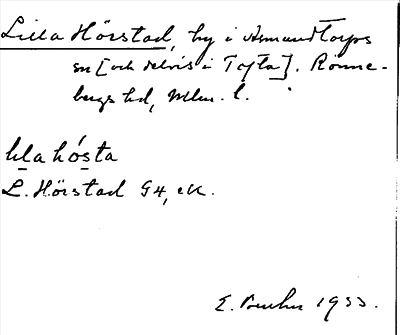 Lilla Hörstad, by i Asmundtorps
sn [och delvis i Tofta]. Rönne-
bergs hd, Mlm. l.
lila hósta
L. Hörstad G4, ek.
E. 1933.